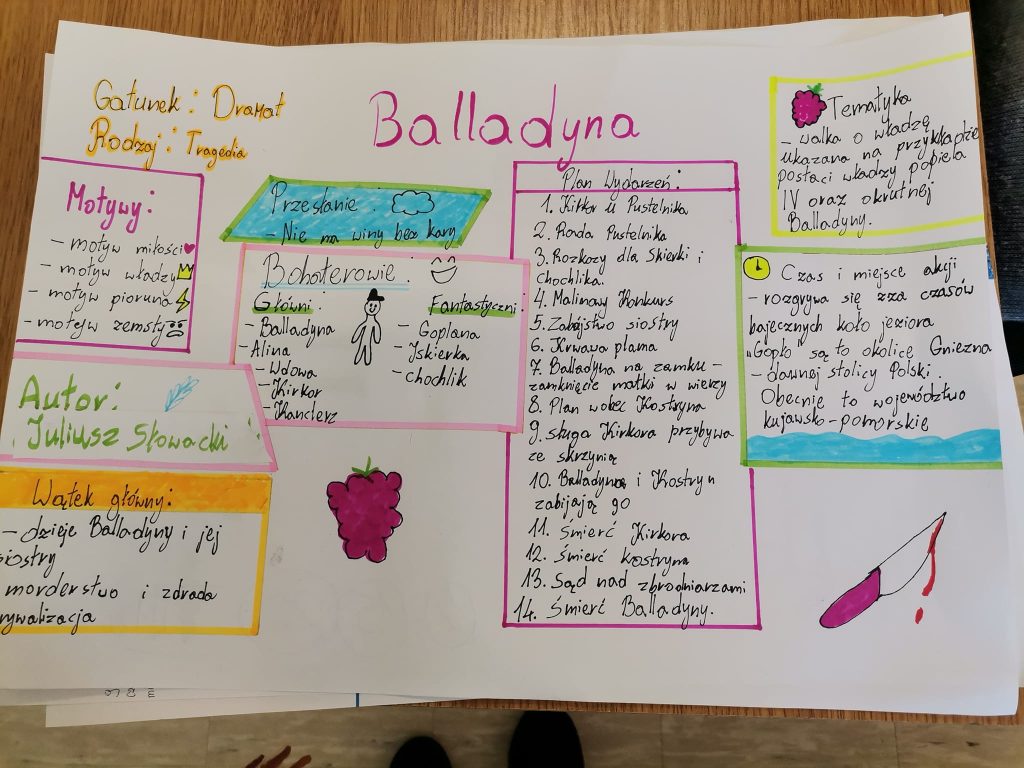 Gatunek: Dramat
Rodzaj: Tragedia
Balladyna
Motywy:
- motyw miłości
- motyw władzy
- motyw pioruna
- motejw zemsty
Autor:
Juliusz Słowacki
Wątek główny:
- dzieje Balladyny i jej
siostry
morderstwo i zdrada
rywalizacja
Przesłanie:
- Nie ma winy bez kary
Bohoterowie:
Główni:
- Balladyna
- Alina
- Wdowa
- Kirkor
- Kanclerz
Fantastyczni:
- Goplana
- Iskierka
- chochlik
Plan Wydarzeń:
1. Kirkor u Pustelnika
2. Rada Pustelnika
3. Rozkazy dla Skierki i
chochlika.
4. Malinowy Konkurs
5. Zabójstwo siostry
6. Krwawa plama
7. Balladyna na zamku -
zamknięcie matki w wieży
8. Plan wobec Kostryna
9. sługa Kirkora przybywa
ze skrzynią
10. Balladyna i Kostryn
zabijają go
11. Śmierć Kirkora
12. Śmierć kostryna
13. Sąd nad zbrodniarzami
14. Śmierć Balladyny.
Tematyka
- walka o władzę
ukazana na przykładzie
postaci władzy popiela
IV oraz okrutnej
Balladyny.
Czas i miejsce akcji
- rozgrywa się zza czasów
bajecznych koło jeziora
"Gopło są to okolice Gniezna
- dawnej stolicy Polski.
Obecnie to województwo
kujawsko-pomorskie